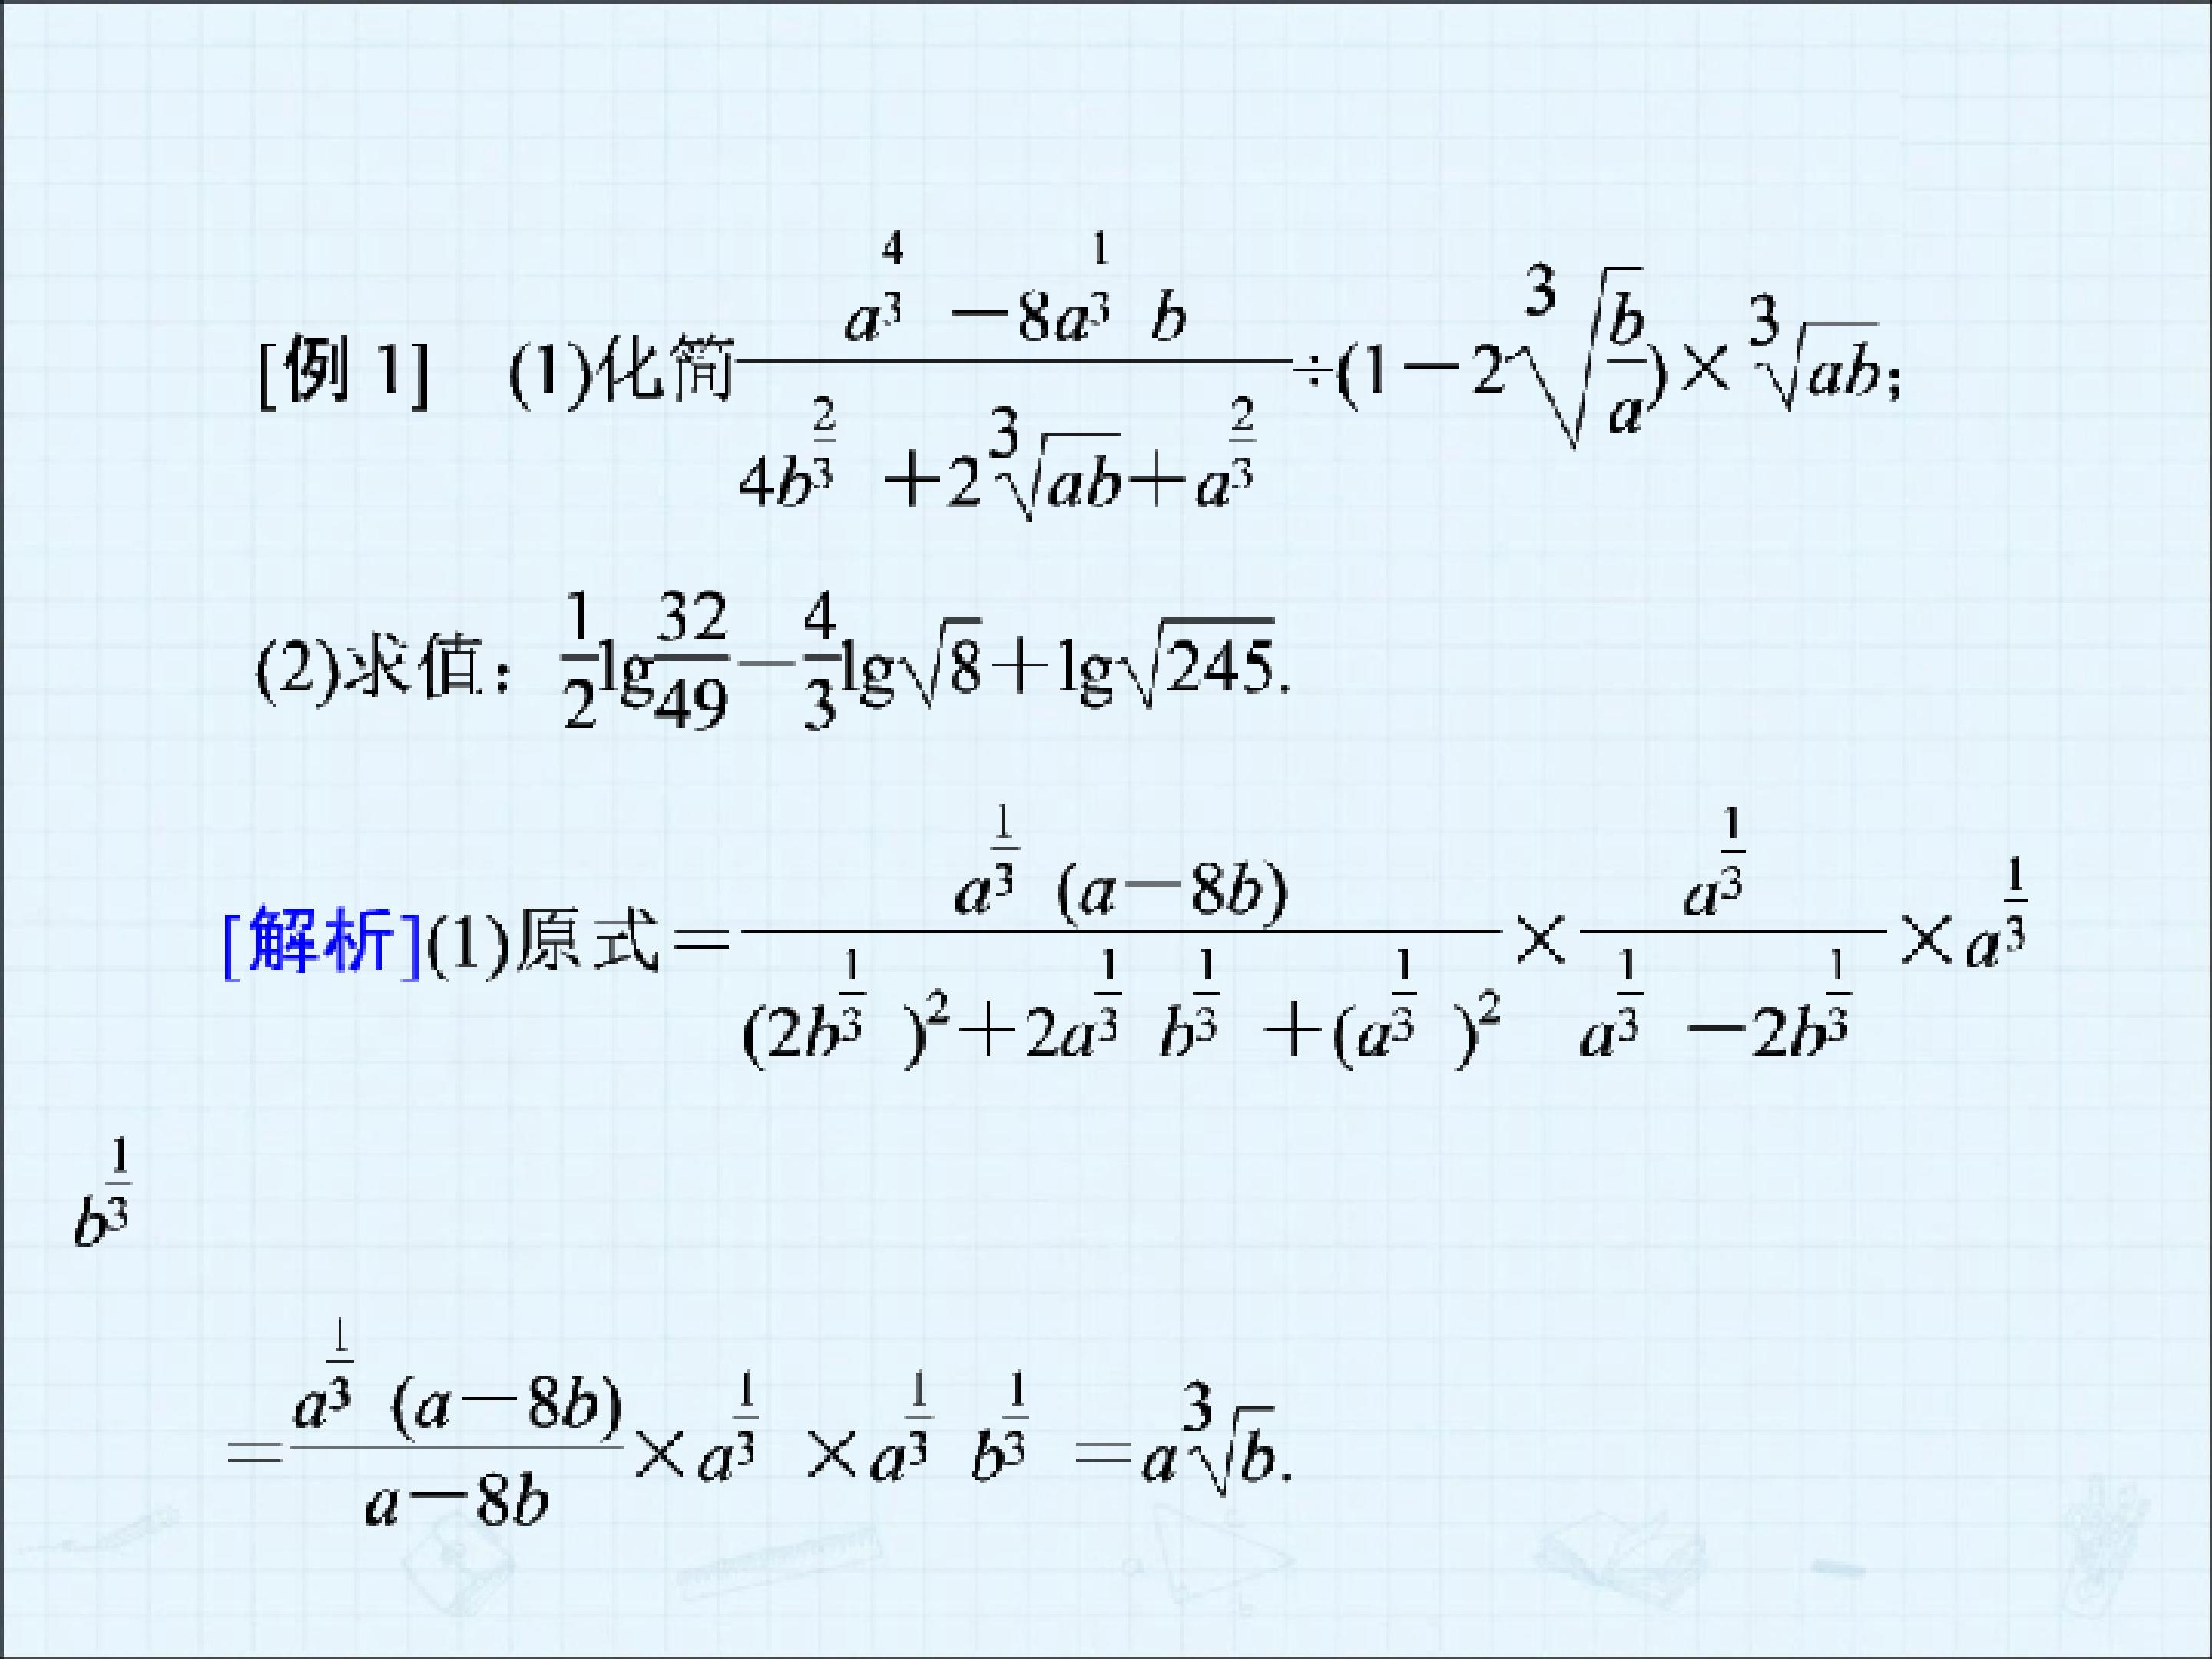 [例 1] (1)化简\frac{a^{\frac{4}{3}}-8a^{\frac{1}{3}}b}{4b^{\frac{2}{3}}+2\sqrt[3]{ab}+a^{\frac{2}{3}}}÷(1-2\sqrt[3]{\frac{b}{a}})×\sqrt[3]{ab};
(2)求值：\frac{1}{2}lg\frac{32}{49}-\frac{4}{3}lg\sqrt{8}+lg\sqrt{245}.
[解析](1)原式=\frac{a^{\frac{1}{3}}(a-8b)}{(2b^{\frac{1}{3}})^2+2a^{\frac{1}{3}}b^{\frac{1}{3}}+(a^{\frac{1}{3}})^2}×\frac{a^{\frac{1}{3}}}{a^{\frac{1}{3}}-2b^{\frac{1}{3}}}×a^{\frac{1}{3}}
b^{\frac{1}{3}}
=\frac{a^{\frac{1}{3}}(a-8b)}{a-8b}×a^{\frac{1}{3}}×a^{\frac{1}{3}}b^{\frac{1}{3}}=a\sqrt[3]{b}.